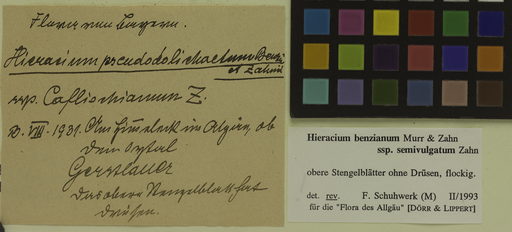 Flora von Bayern.
Hieracium pseudodolichaetum Benz
et Zahn
ssp. Caflischianum Z.
VIII. 1931. Am Himmeleck im Allgäu, ob
dem Oytal
Gerstlauer
Das obere Stengelblatt hat
Drüsen.
Hieracium benzianum Murr & Zahn
ssp. semivulgatum Zahn
obere Stengelblätter ohne Drüsen, flockig.
det. rev. F. Schuhwerk (M) II/1993
für die "Flora des Allgäu" [DÖRR & LIPPERT]